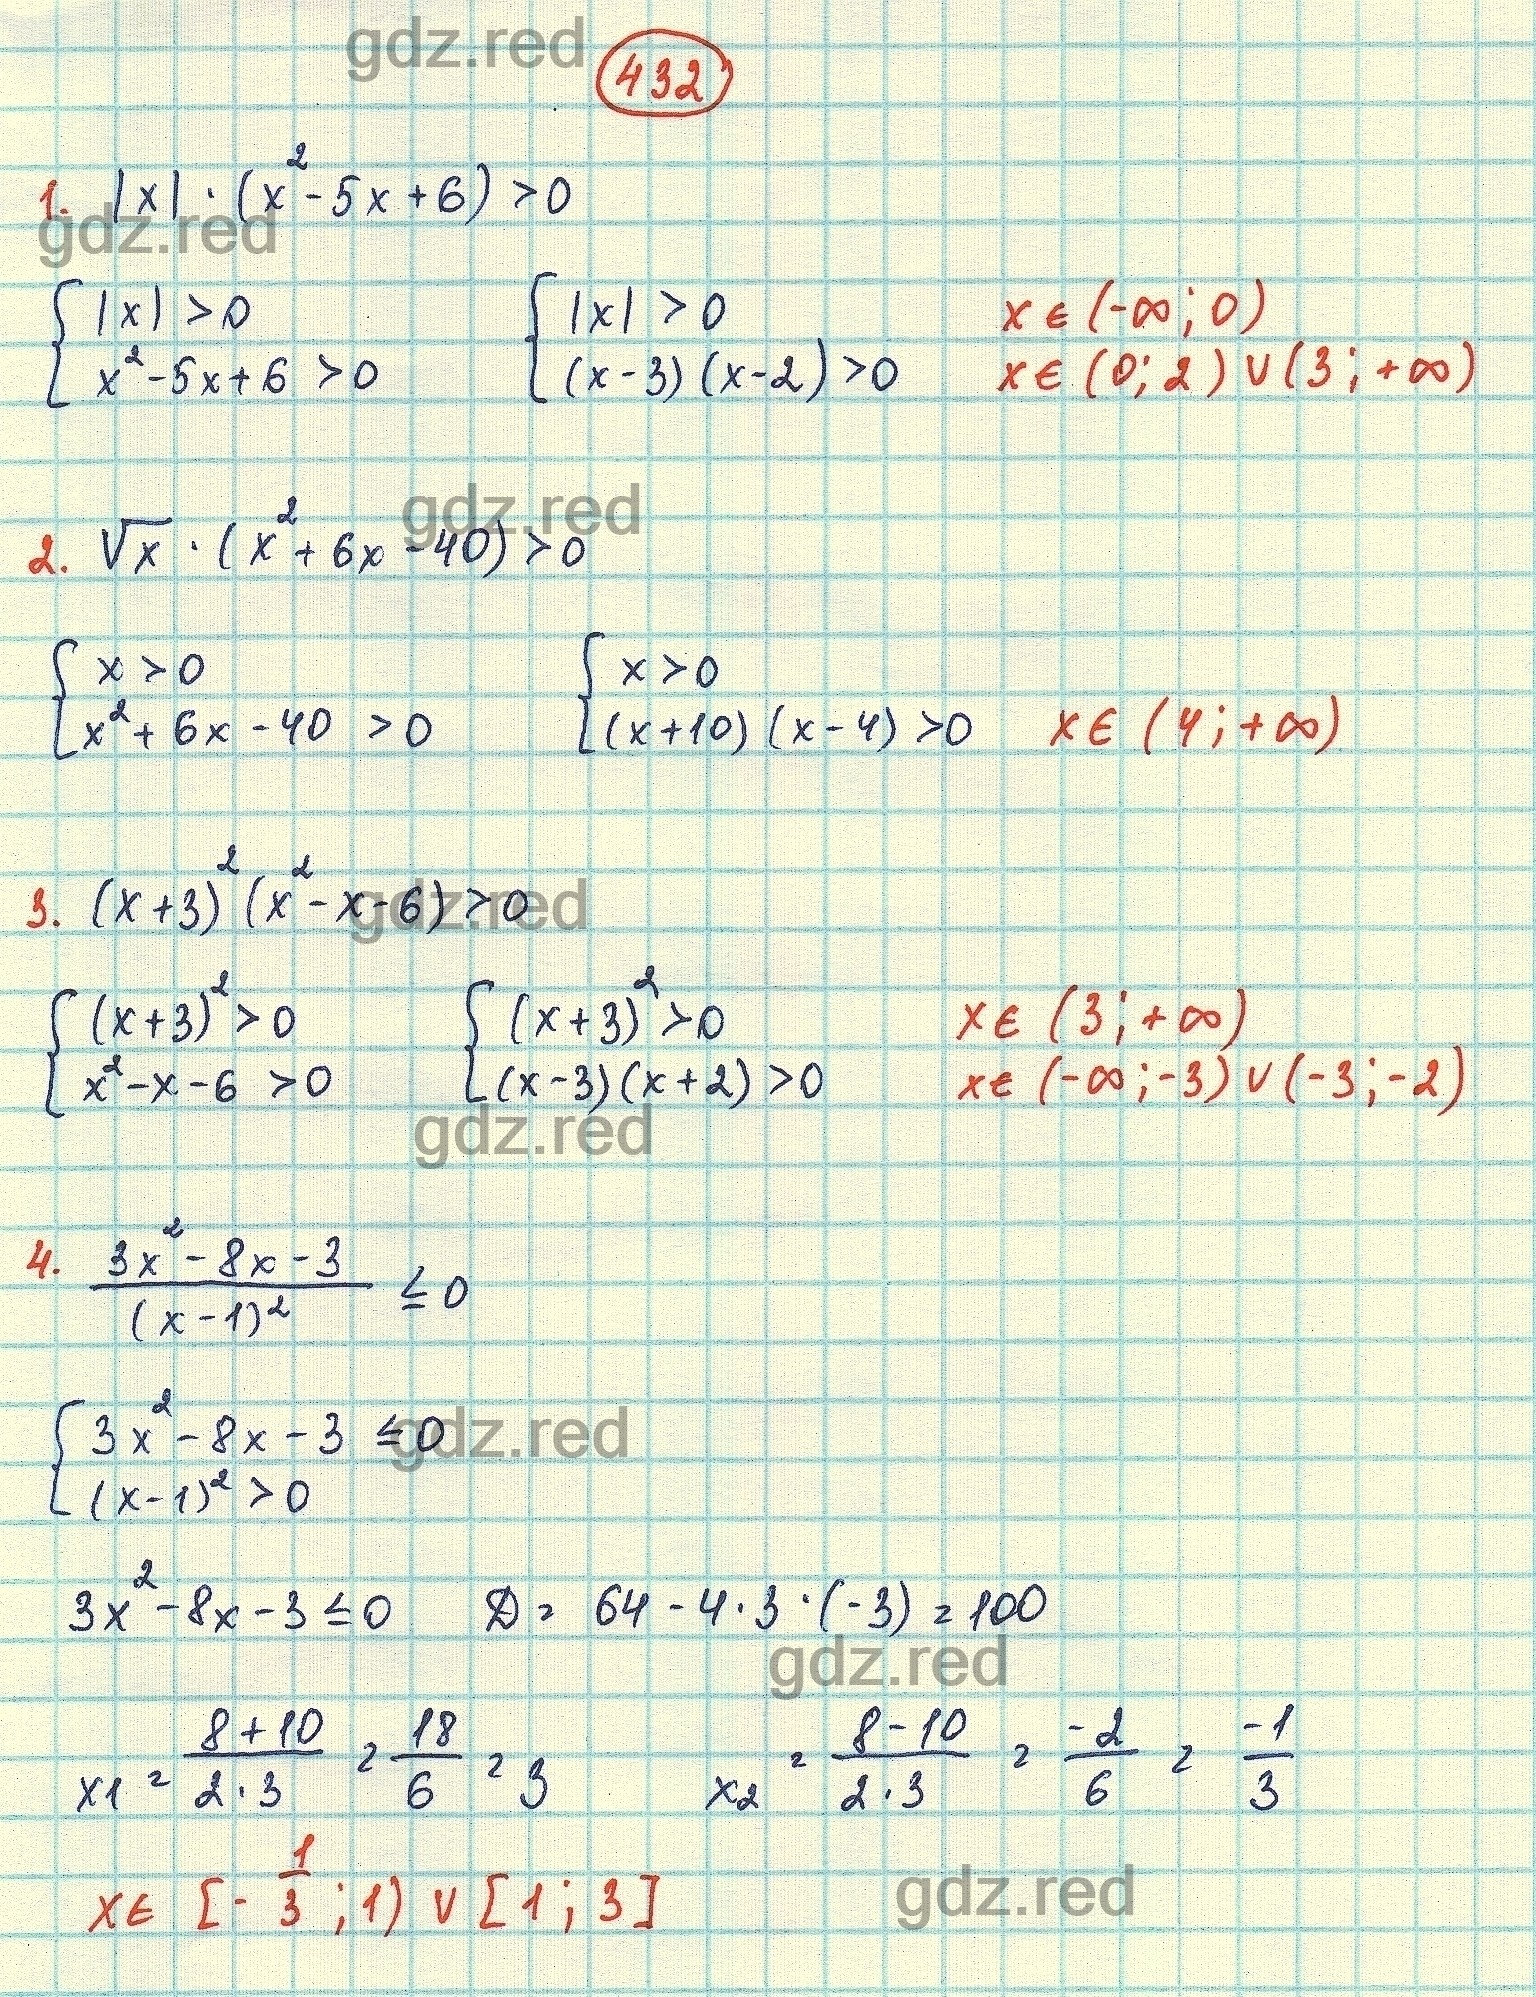 gdz.red
432
1. |x| · (x² - 5x + 6) > 0
gdz.red
{ |x| > 0 { |x| > 0 x ∈ (-∞; 0)
x² - 5x + 6 > 0 (x - 3)(x - 2) > 0 x ∈ (0; 2) ∨ (3; +∞)
gdz.red
2. √x · (x² + 6x - 40) > 0
{ x > 0 { x > 0
x² + 6x - 40 > 0 (x + 10)(x - 4) > 0 x ∈ (4; +∞)
3. (x + 3)² (x² - x - 6) > 0
gdz.red
{ (x + 3)² > 0 { (x + 3)² > 0 x ∈ (3; +∞)
x² - x - 6 > 0 (x - 3)(x + 2) > 0 x ∈ (-∞; -3) ∨ (-3; -2)
gdz.red
4. 3x² - 8x - 3
(x - 1)² ≤ 0
{ 3x² - 8x - 3 ≤ 0
gdz.red
(x - 1)² > 0
3x² - 8x - 3 ≤ 0 D = 64 - 4 · 3 · (-3) = 100
gdz.red
x1 = (8 + 10)/(2 · 3) = 18/6 = 3 x2 = (8 - 10)/(2 · 3) = -2/6 = -1/3
x ∈ [-1/3; 1) ∨ [1; 3]
gdz.red